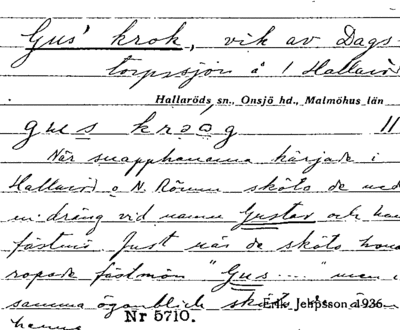 Gus' krok, vik av Dags-
torpssjön å 1 Hallaröd
Hallaröds sn., Onsjö hd., Malmöhus län
gus krog 11
När snapphanarna härjade i
Hallaröd o N. Rörum sköts de ned
en dräng vid namn Gustav och han
fästmö. Just när de sköts hono
ropade fästmön "Gus ...." men i
samma ögonblick
Erik Jeppsson 1936.
henne
Nr 5710.